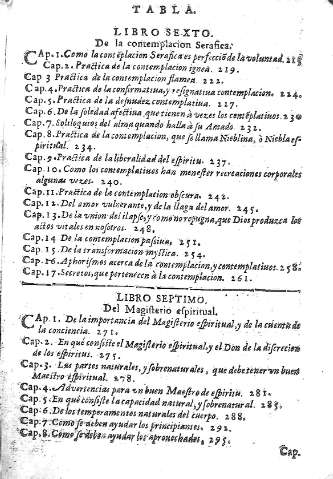 TABLA.
LIBRO SEXTO.
De la contemplacion Serafica.
CAp. 1. Como la contẽplacion Serafica es perfeciõ de la voluntad. 218
Cap. 2. Practica de la contemplacion ignea. 219.
Cap 3 Practica de la contemplacion flamea. 222.
Cap. 4. Practica de la confirmatiua, y resignatiua contemplacion. 224.
Cap. 5. Practica de la desnudez contemplatiua. 227.
Cap. 6. De la soledad afectiua, que tienen à vezes los contẽplatiuos. 230
Cap. 7. Soliloquios del alma quando halla à su Amado 232.
Cap. 8. Practica de la contemplacion, que se llama Nieblina, ò Niebla es-
piritual. 234.
Cap. 9. Practica de la liberalidad del espiritu. 237.
Cap. 10. Como los contemplatiuos han menester recreaciones corporales
algunas vezes. 240.
Cap. 11. Practica de la contemplacion obscura. 242.
Cap. 12. Del amor vulnerante, y de la llaga del amor. 245.
Cap. 13. De la vnion del ilapse, y como no repugna, que Dios produzca los
actos vitales en nosotros. 248.
Cap. 14 De la contemplacion passiua. 251.
Cap. 15. De la transformacion mystica. 254.
Cap. 16. Aphorismos acerca de la contemplacion, y contemplatiuos. 258.
Cap. 17. Secretos, que pertenecẽ à la contemplacion. 261.
LIBRO SEPTIMO.
Del Magisterio espiritual.
CAp 1. De la importancia del Magisterio espiritual, y de la cuenta de
la conciencia. 271.
Cap. 2. En què consiste el Magisterio espiritual, y el Don de la discrecion
de los espiritus. 275.
Cap. 3. Las partes naturales, y sobrenaturales, que debe tener vn buen
Maestro espiritual. 278.
Cap. 4. Advertencias para vn buen Maestro de espiritu. 281.
Cap. 5. En què consiste la capacidad natural, y sobrenatural. 285.
Cap. 6. De los temperamentos naturales del cuerpo. 288.
Cap. 7. Como se deben ayudar los principiantes. 292.
Cap. 8. Como se deben ayudar los aprouechados. 295.
Cap.